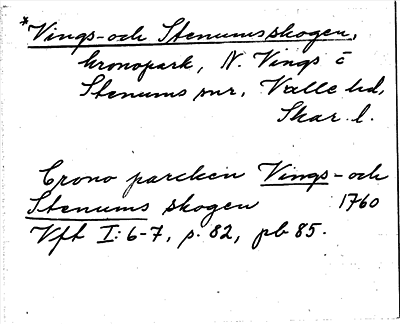 *Vings- och Stenumsskogen,
kronopark, N. Vings o
Stenums snr, Valle hd,
Skar. l.
Crono parcken Vings- och
Stenums skogen 1760
Vft I: 6-7, s. 82, pb 85.